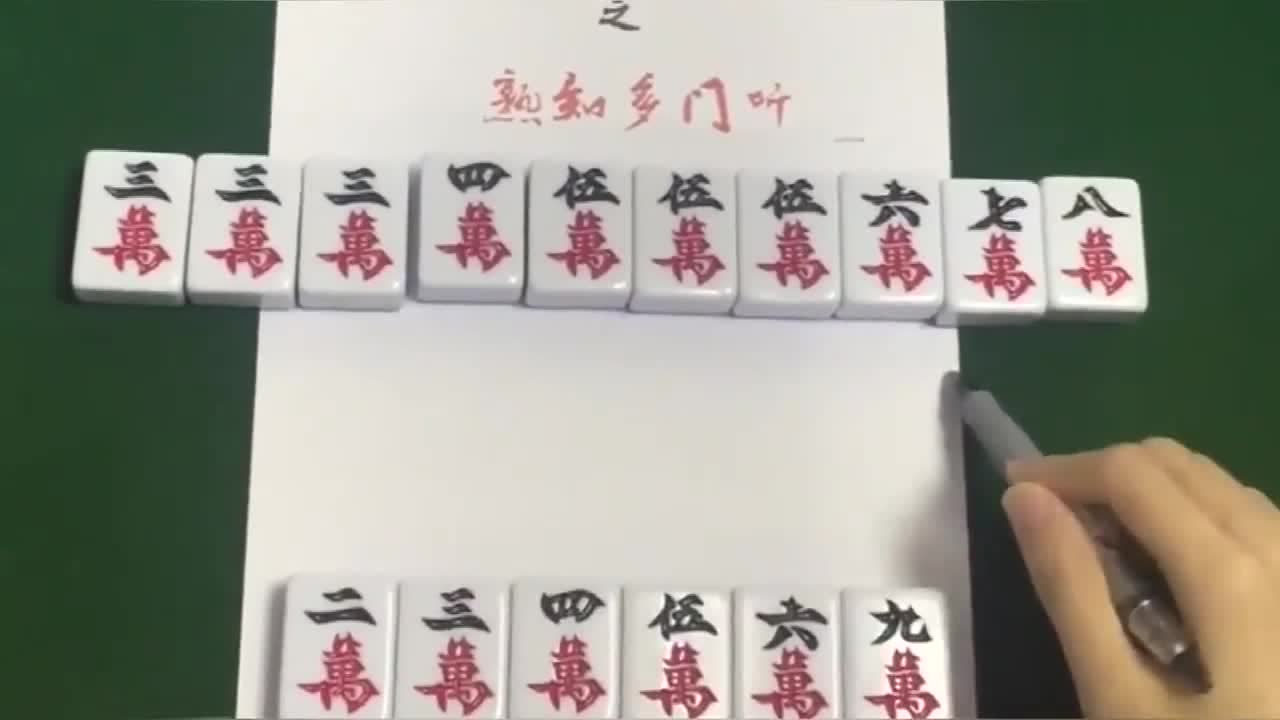 之
熟知多门听
三 三 三 四 伍 伍 伍 六 七 八
萬 萬 萬 萬 萬 萬 萬 萬 萬 萬
二 三 四 伍 六 九
萬 萬 萬 萬 萬 萬